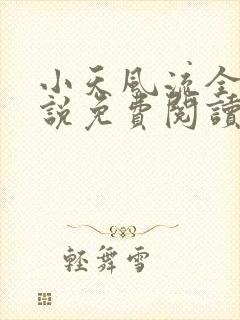 小天風流全
說免費閱讀
輕舞雪